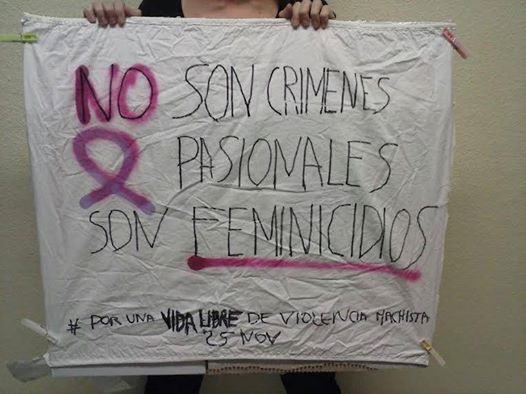 NO SON CRIMENES
PASIONALES
SON FEMINICIDIOS
# POR UNA VIDA LIBRE DE VIOLENCIA MACHISTA
25 NOV